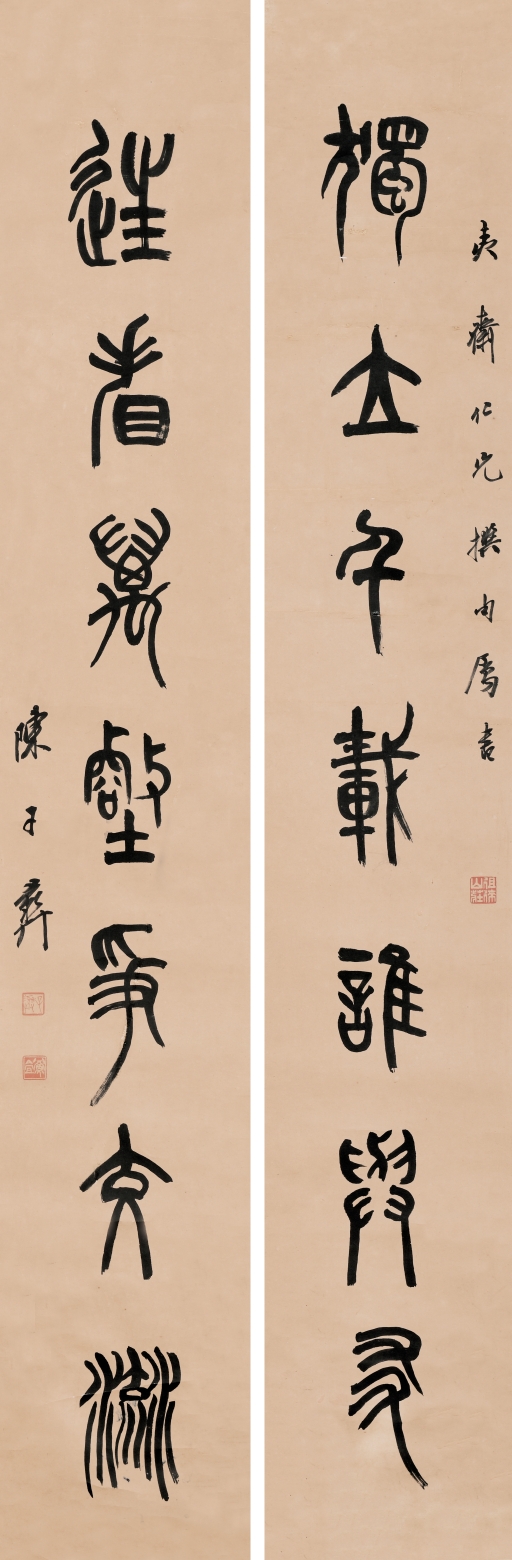 夷齋仁兄撰句屬書
獨立千載誰與友
往看萬壑爭交流
陳子彝